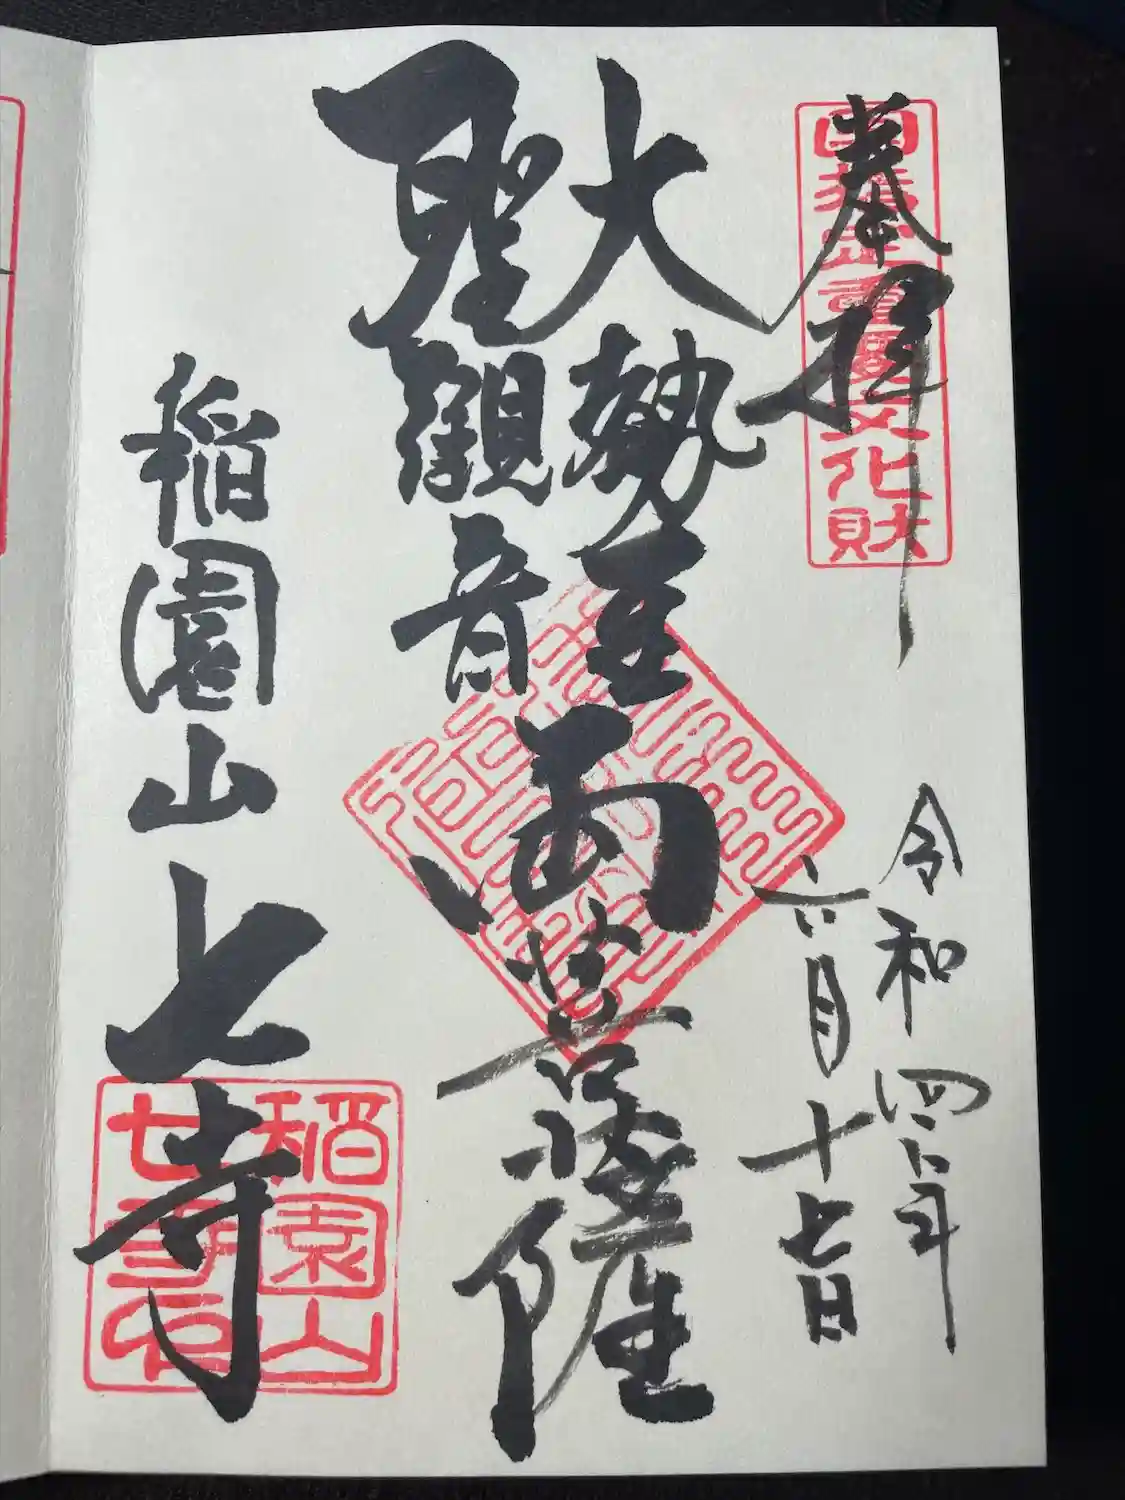 奉拝
国指定重要文化財
令和四年
六月十七日
大勢至
聖観音
両菩薩
稲園山
七寺
稲園山
七寺